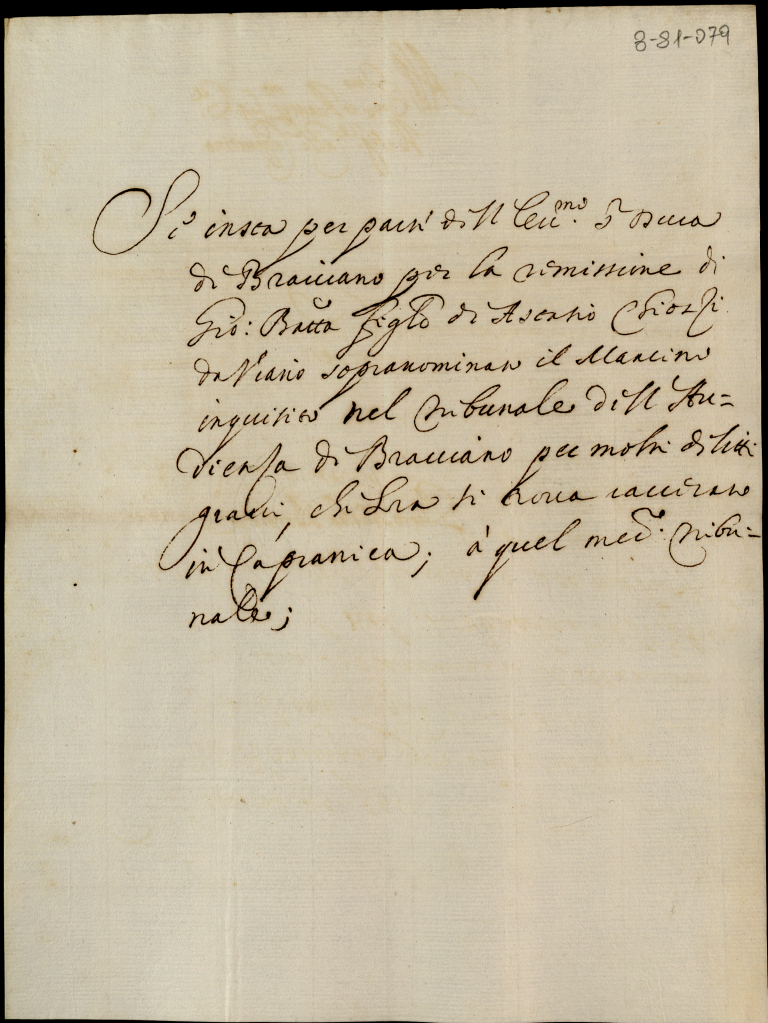 8-81-079
Si insta per parte dell'Ecc.mo Sr Duca
di Bracciano per la remissione di
Gio: Batta figlo di Ascanio
da Viano sopranominato il Mancino
inquisito nel tribunale dell'Au=
dienza di Bracciano per molti delitti
gravi, che hora si trova carcerato
in Capranica; à quel med.o tribu=
nale;